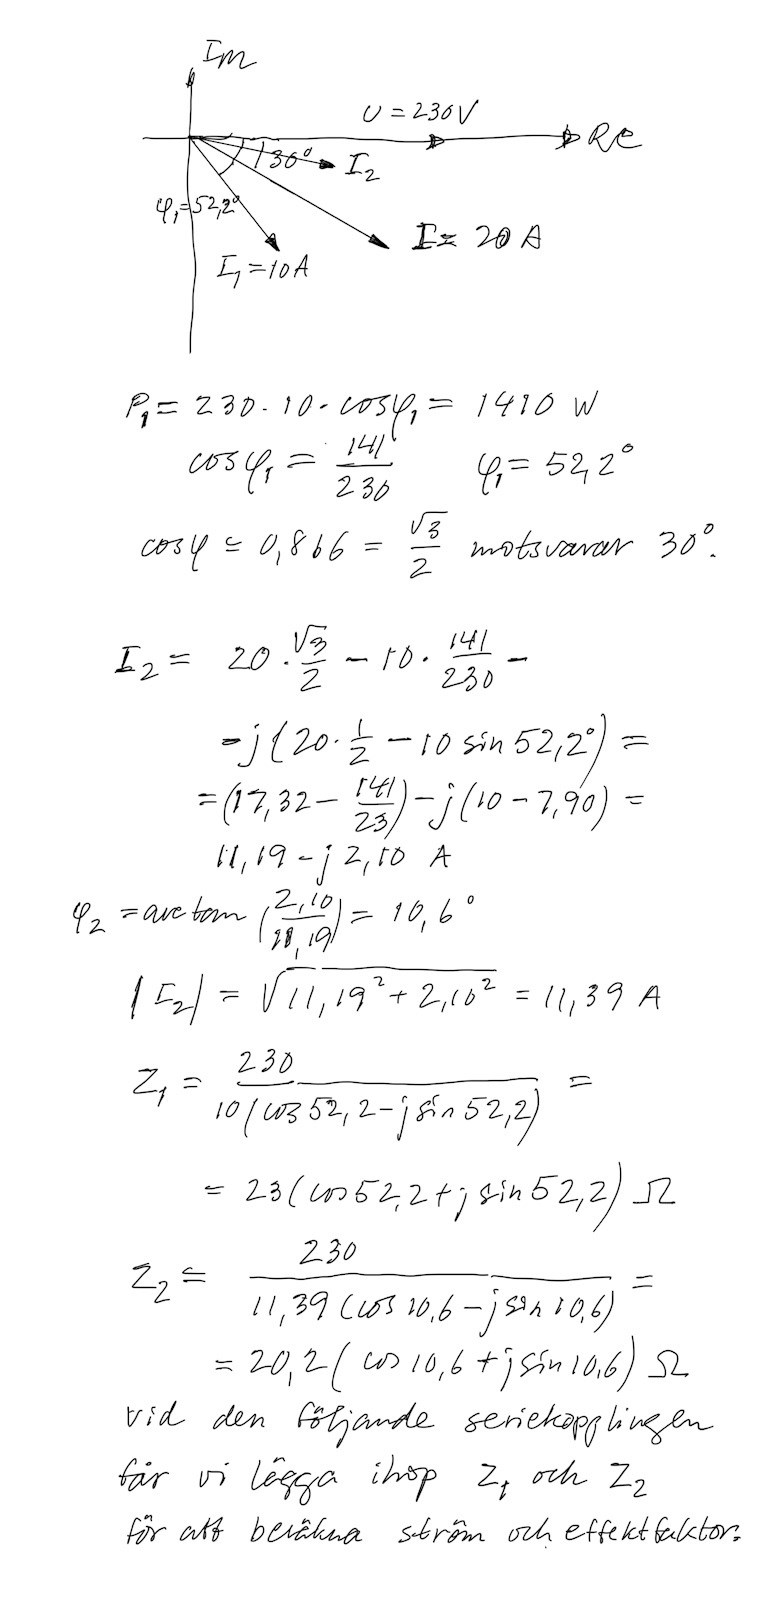 Im
U = 230V
Re
30°
I₂
φ₁=52,2°
I = 20 A
I₁=10A
P₁ = 230 · 10 · cosφ₁ = 1410 W
cosφ₁ = 141/230 φ₁ = 52,2°
cosφ = 0,866 = √3/2 motsvarar 30°.
I₂ = 20 · √3/2 − 10 · 141/230 −
−j(20 · 1/2 − 10 sin 52,2°) =
= (17,32 − 141/23) − j(10 − 7,90) =
11,19 − j 2,10 A
φ₂ = arctan (2,10/11,19) = 10,6°
|I₂| = √(11,19² + 2,10²) = 11,39 A
Z₁ = 230/10(cos 52,2 − j sin 52,2) =
= 23(cos 52,2 + j sin 52,2) Ω
Z₂ = 230/11,39 (cos 10,6 − j sin 10,6) =
= 20,2 (cos 10,6 + j sin 10,6) Ω
vid den följande seriekopplingen
får vi lägga ihop Z₁ och Z₂
för att beräkna ström och effektfaktor.